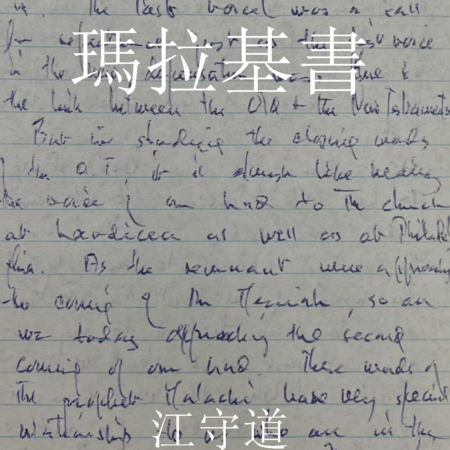 瑪拉基書
The last was a call
for as the first voice
in the
the link between the Old & the New Testaments
in studying the closing words
of the O.T., it is almost like hearing
the voice of our Lord to the church
at Laodicea as well as at Philadel
phia. As the remnant were approaching
the coming of the Messiah, so are
we today approaching the second
coming of our Lord. These words of
the prophet Malachi have very special
relationship to us who are in the
江守道